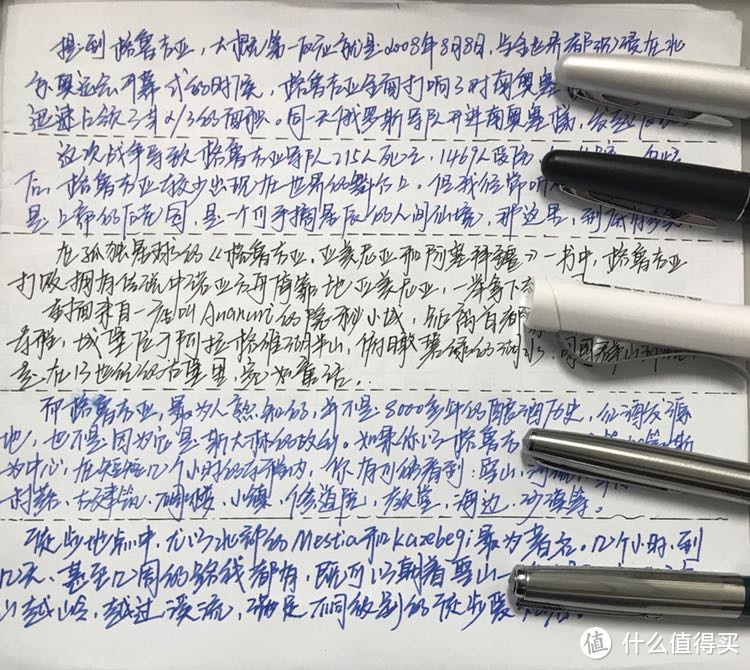 提到格鲁吉亚，大概第一反应就是2008年8月8日，当全世界都沉浸在北
京奥运会开幕式的时候，格鲁吉亚全面打响了对南奥塞
迅速占领了其2/3的面积。同一天俄罗斯导队开进南奥塞梯，
这次战争导致格鲁吉亚导队215人死亡，1469人
后，格鲁吉亚较少出现在世界的舞台上。但我经常听
是上帝的后花园，是一个可手摘星辰的人间仙境，那这里，到底有多美
在孤独星球的《格鲁吉亚，亚美尼亚和阿塞拜疆》一书中，格鲁吉亚
打败拥有传说中诺亚方舟停靠地亚美尼亚，一举拿下
封面来自一座叫Ananuri的隐秘小城，距离首都
车程，城堡位于阿拉格维湖半山，俯瞰碧绿的湖水，
是在13世纪的古堡里，宛如童话..
而格鲁吉亚，最为人熟知的，并不是8000多年的酿酒历史，红酒发源
地，也不是因为它是斯大林的故乡。如果你以格鲁吉 斯
为中心，在短短几个小时的车程内，你有可能看到：雪山、河流、
古建筑、碉楼、小镇、修道院，教堂，海边，沙漠等。
徒步地点中，尤以北部的Mestia和Kazebegi最为著名。几个小时，到
几天、甚至几周的路线都有，既可以朝着雪山
山越岭，越过溪流，满足不同级别的徒步爱
值 什么值得买